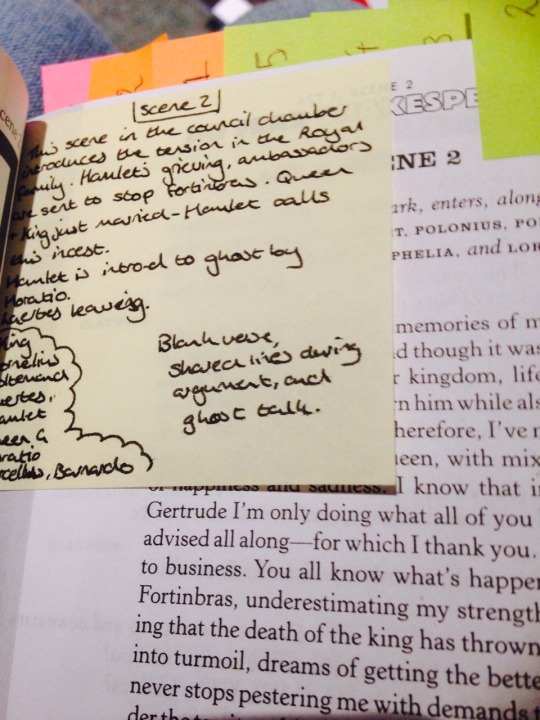 scene 2
This scene in the council chamber
introduces the tension in the Royal
family. Hamlet's grieving, ambassadors
are sent to stop Fortinbras. Queen
+ King just married - Hamlet calls
this incest.
Hamlet is intro-d to ghost by
Horatio.
Laertes leaving.
Blank verse,
shared lines during
argument, and
ghost talk.
King
Cornelius
Voltemand
Laertes,
Hamlet
Queen G
Horatio
Marcellus, Barnardo
2
1
5
3
2
NE 2
ark, enters, along
T, POLONIUS, PO
PHELIA, and LOR
memories of m
d though it was
r kingdom, life
n him while als
herefore, I've r
een, with mix
of happiness and sadness. I know that i
Gertrude I'm only doing what all of you
advised all along—for which I thank you.
to business. You all know what's happen
Fortinbras, underestimating my strength
ing that the death of the king has thrown
into turmoil, dreams of getting the bette
never stops pestering me with demands t